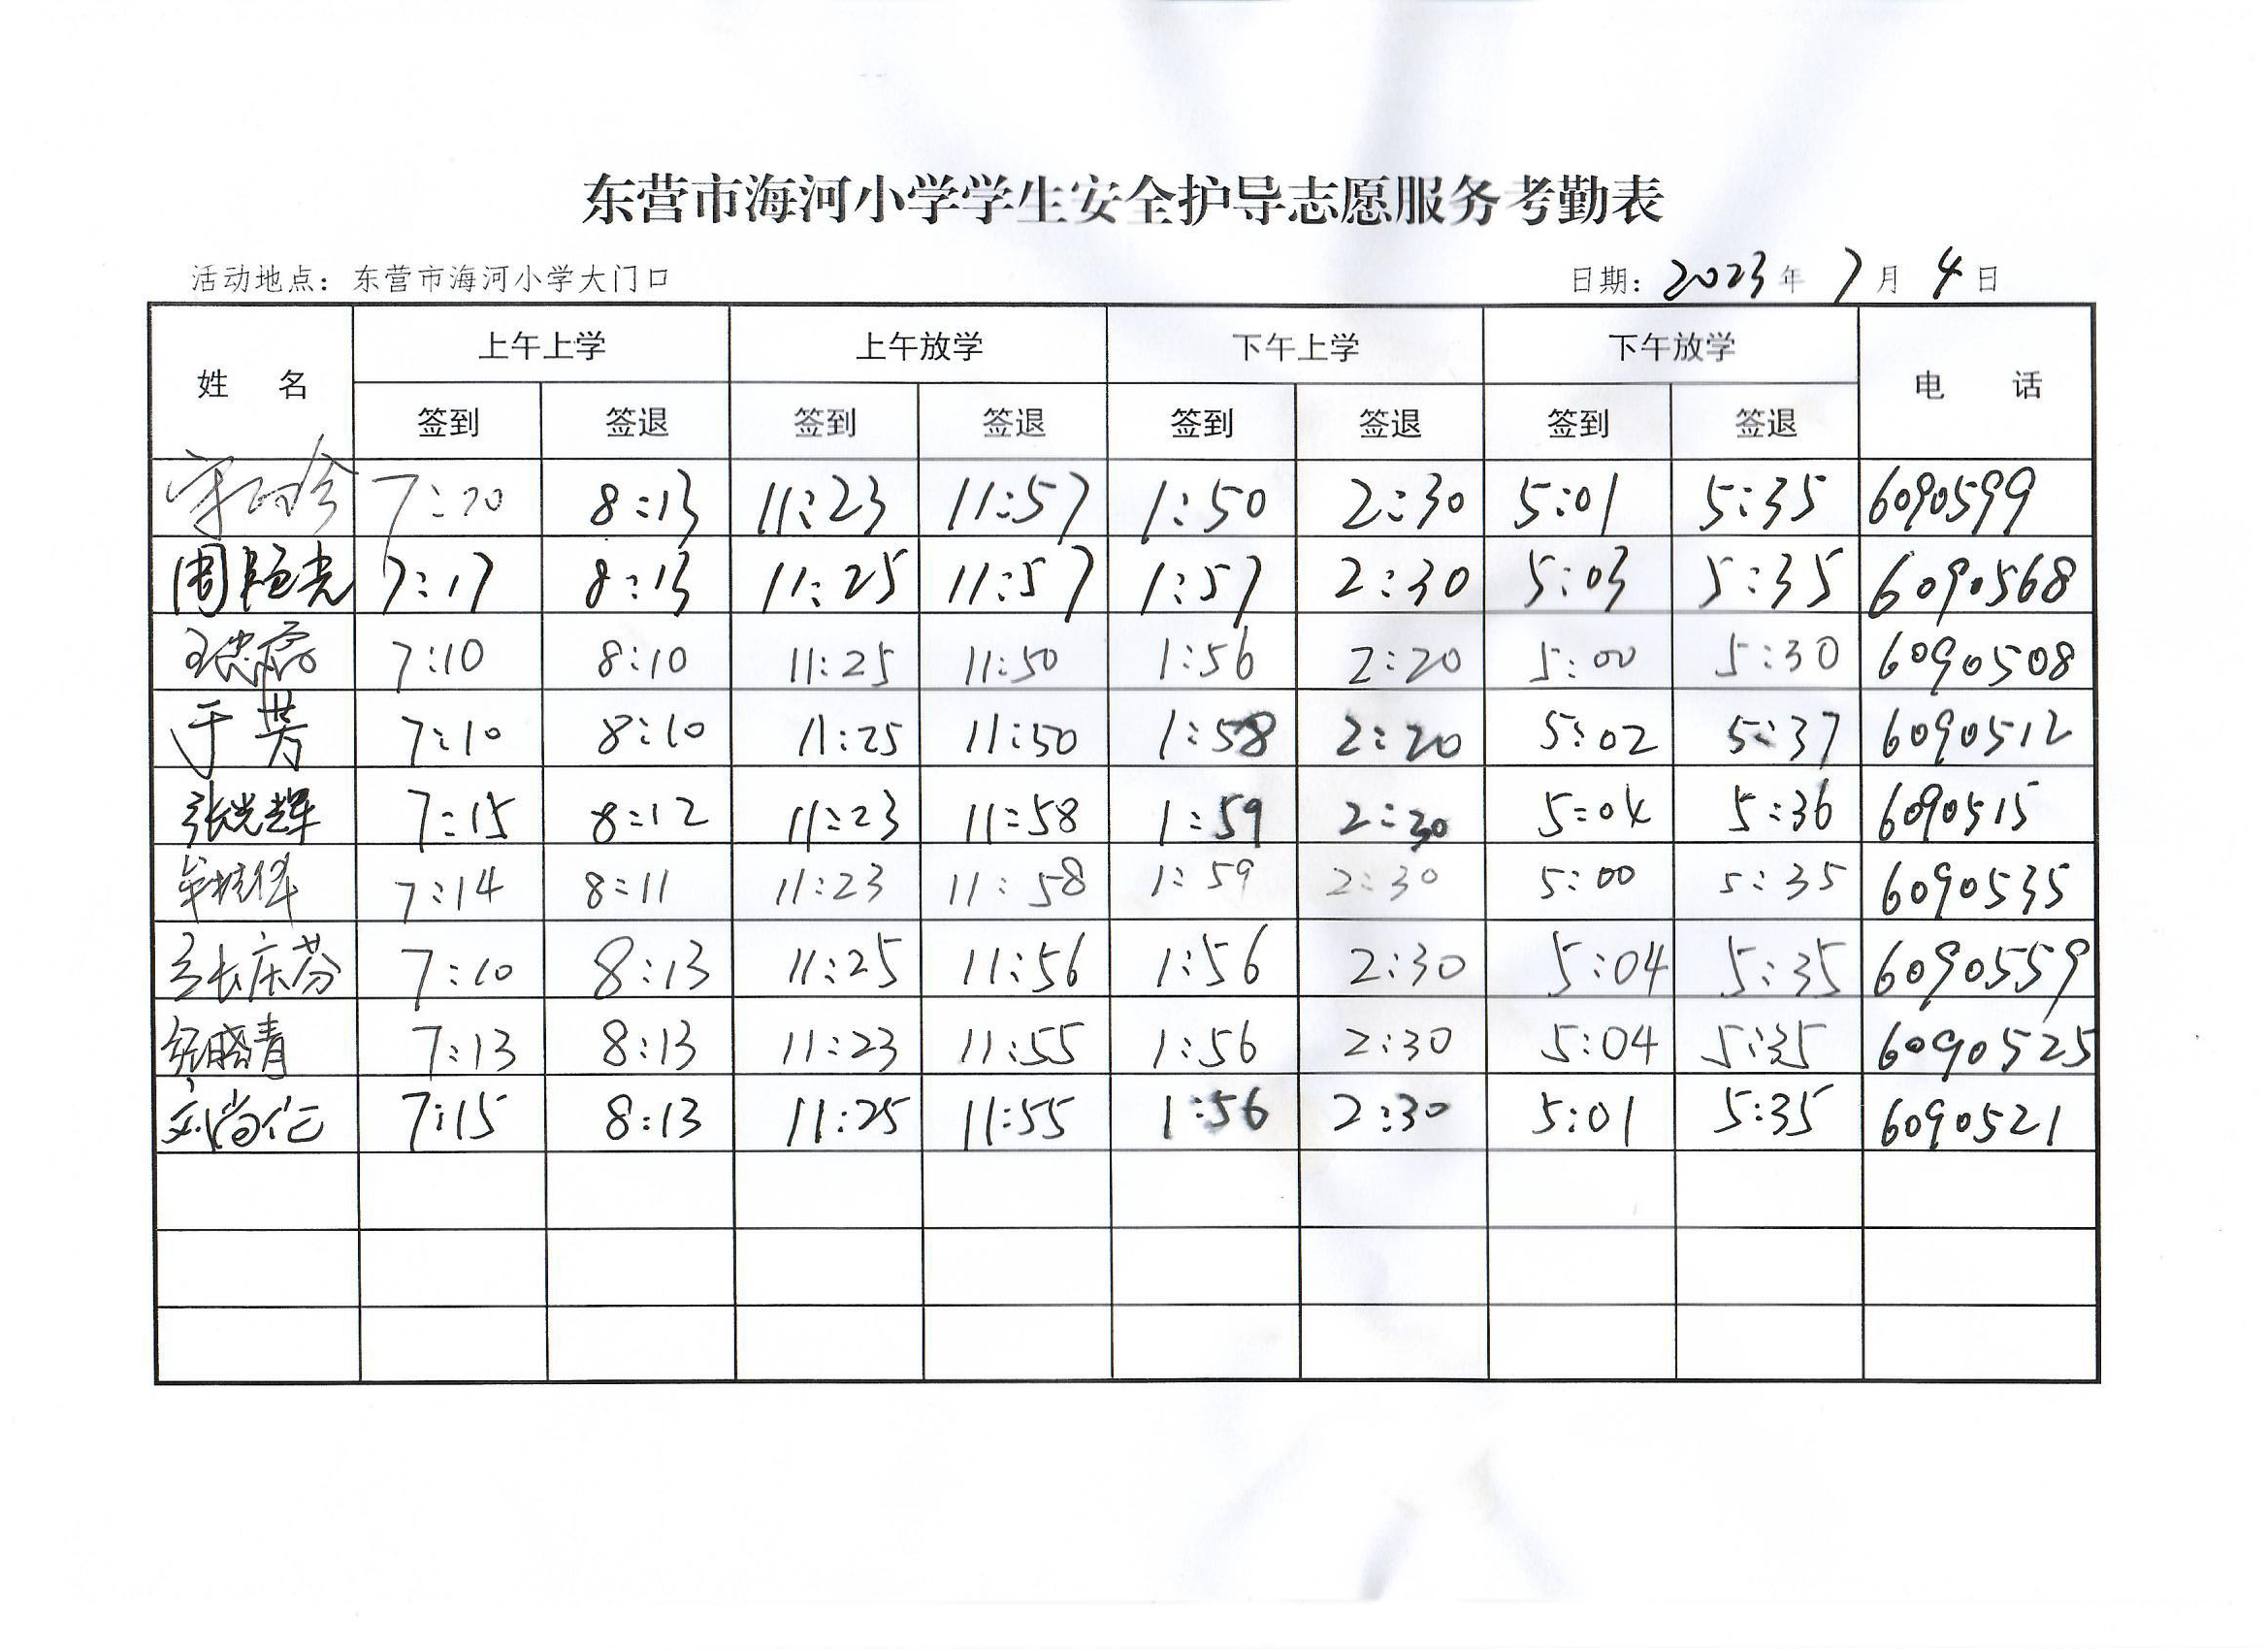 东营市海河小学学生安全护导志愿服务考勤表
活动地点：东营市海河小学大门口 日期：2023年7月4日
姓 名 上午上学 上午放学 下午上学 下午放学 电 话
签到 签退 签到 签退 签到 签退 签到 签退
7:20 8:13 11:23 11:57 1:50 2:30 5:01 5:35 6090599
周艳光 7:17 8:13 11:25 11:57 1:57 2:30 5:03 5:35 6090568
7:10 8:10 11:25 11:50 1:56 2:20 5:00 5:30 6090508
于芳 7:10 8:10 11:25 11:50 1:58 2:20 5:02 5:37 6090512
张光辉 7:15 8:12 11:23 11:58 1:59 2:30 5:04 5:36 6090515
7:14 8:11 11:23 11:58 1:59 2:30 5:00 5:35 6090535
张庆芬 7:10 8:13 11:25 11:56 1:56 2:30 5:04 5:35 6090559
张晓青 7:13 8:13 11:23 11:55 1:56 2:30 5:04 5:35 6090525
刘尚仁 7:15 8:13 11:25 11:55 1:56 2:30 5:01 5:35 6090521